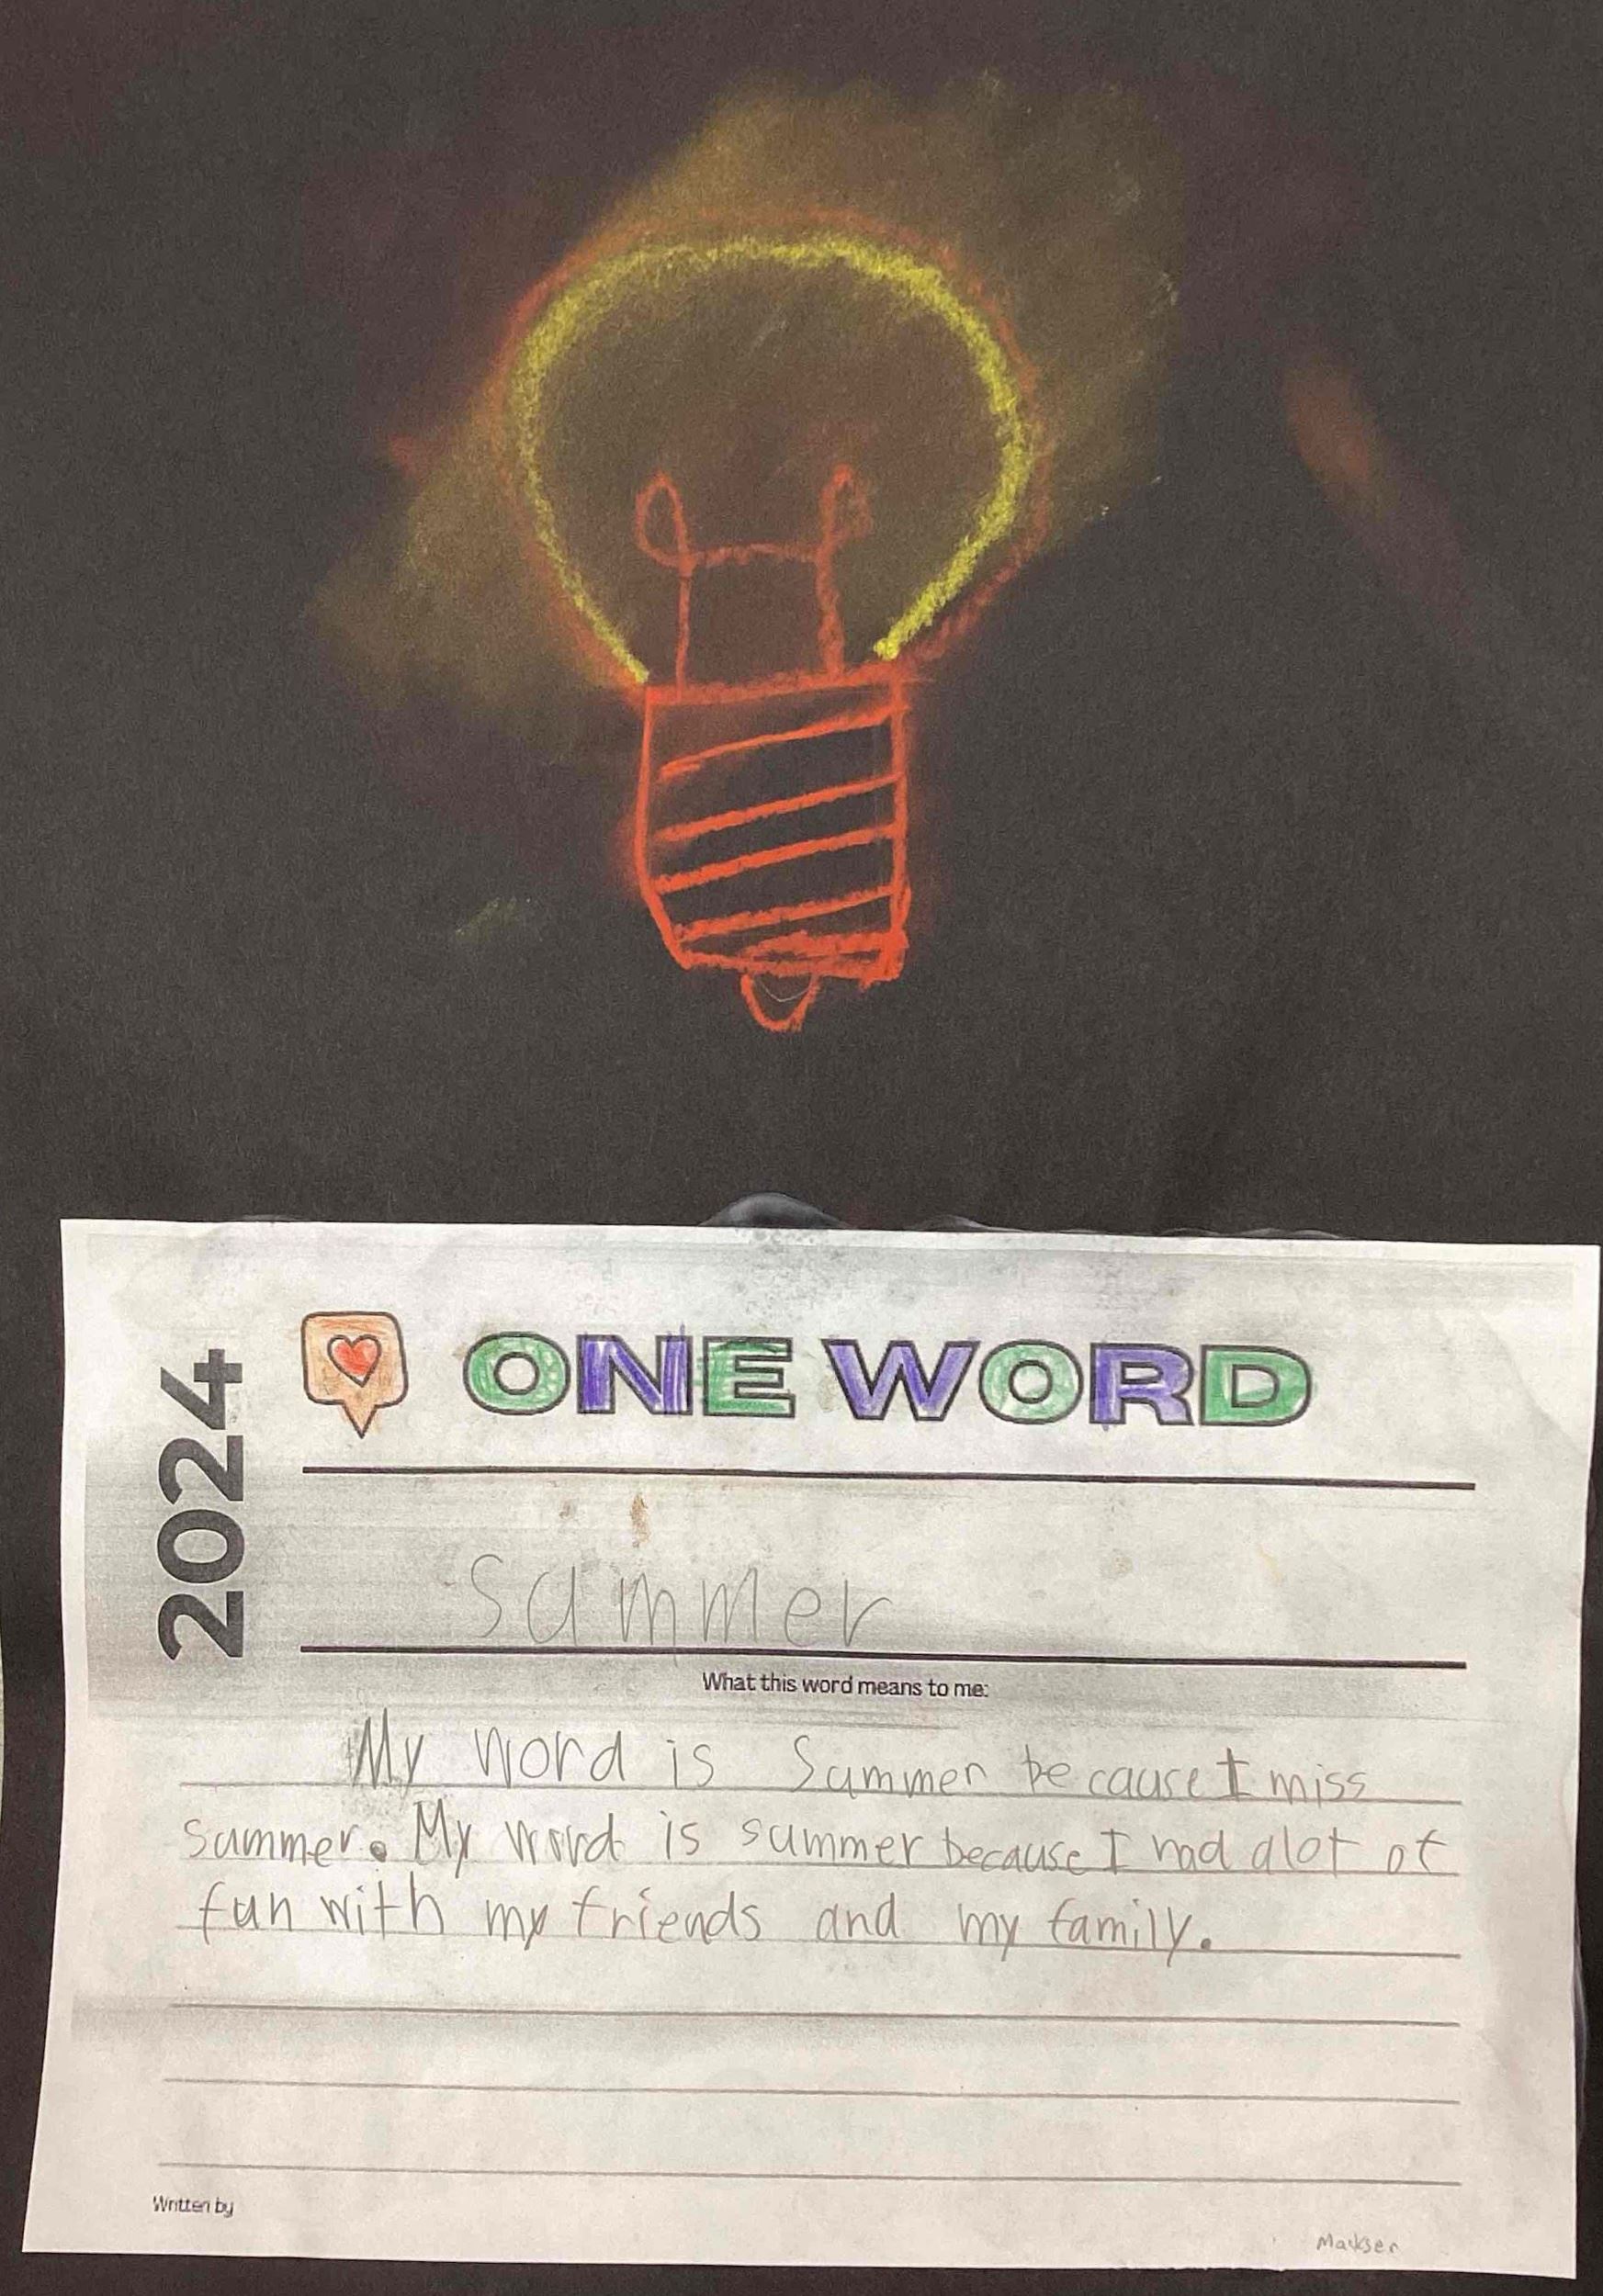 2024
ONE WORD
Summer
What this word means to me:
My word is Summer because I miss
summer. My word is summer because I had alot of
fun with my friends and my family.
Written by